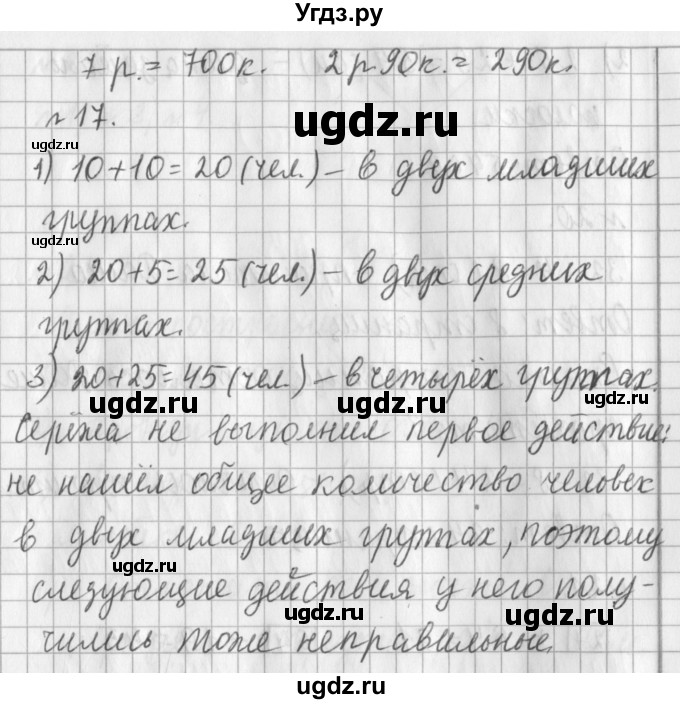 Угдз.ру
7 р. = 700 к. 2 р 90 к. = 290 к.
№ 17.
ugdz.ru
ugdz.ru
1) 10+10=20 (чел.) – в двух младших
группах.
ugdz.ru
2) 20+5=25 (чел.) – в двух средних
группах.
3) 20+25=45 (чел.) – в четырёх группах.
ugdz.ru ugdz.ru
Серёжа не выполнил первое действие:
не нашёл общее количество человек
ugdz.ru ugdz.ru
в двух младших группах, поэтому
ugdz.ru
следующие действия у него полу-
чились тоже неправильные.
ugdz.ru ugdz.ru
ugdz.ru